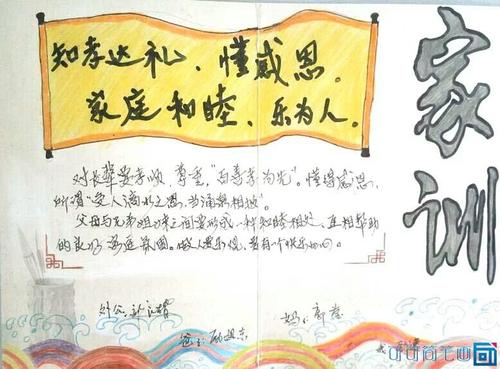 知孝达礼、懂感恩。
家庭和睦、乐为人。
家训
对长辈要孝顺，尊重，"百善孝为先"。懂得感恩，
所谓"受人滴水之恩，当涌泉相报"。
父母与兄弟姐妹之间要形成一种和睦相处、互相帮助
的良好家庭氛围。做人要乐观，要有一个快乐的心。
外公：
妈：
爸：